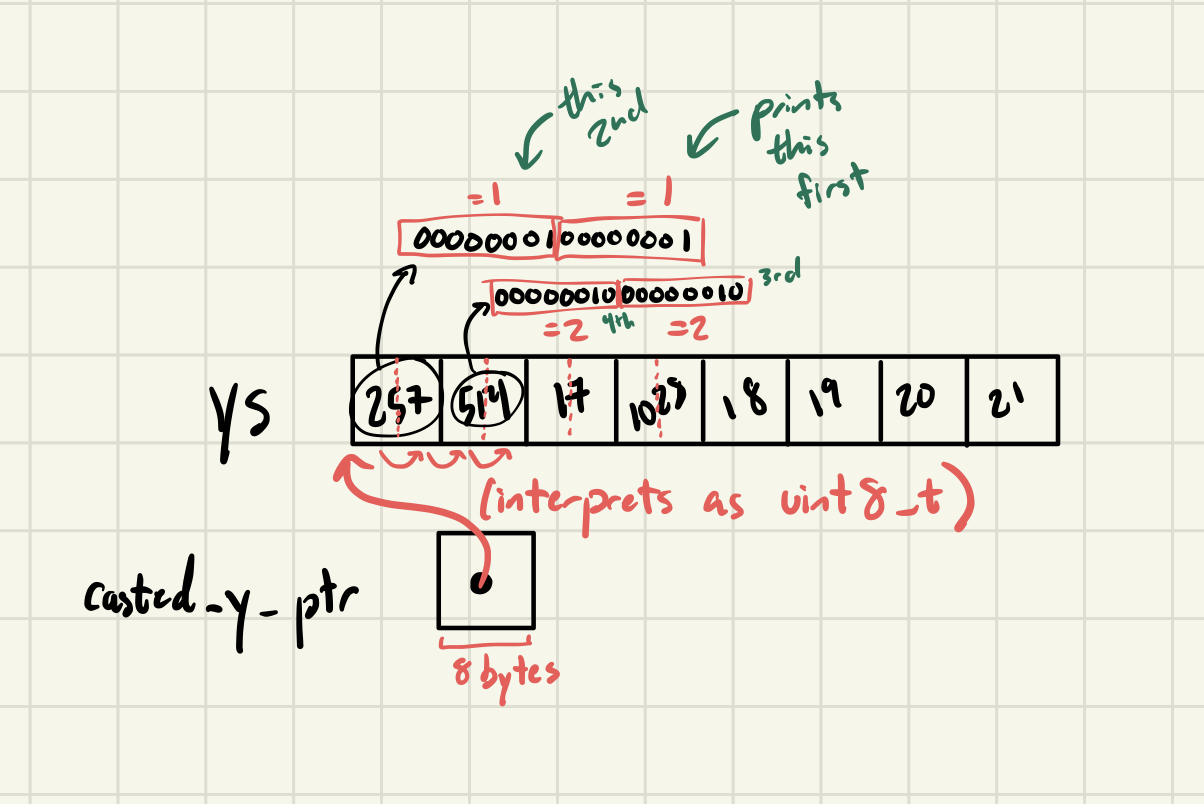 this
2nd
prints
this
first
=1 =1
00000001 00000001
00000010 00000010 3rd
=2 4th =2
ys 257 514 17 1028 18 19 20 21
(interprets as uint8_t)
casted_y_ptr
8 bytes